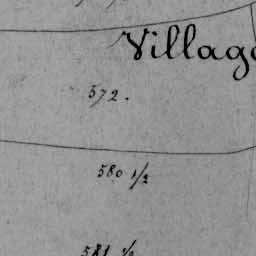 Village
572.
580 1/2
581 1/2